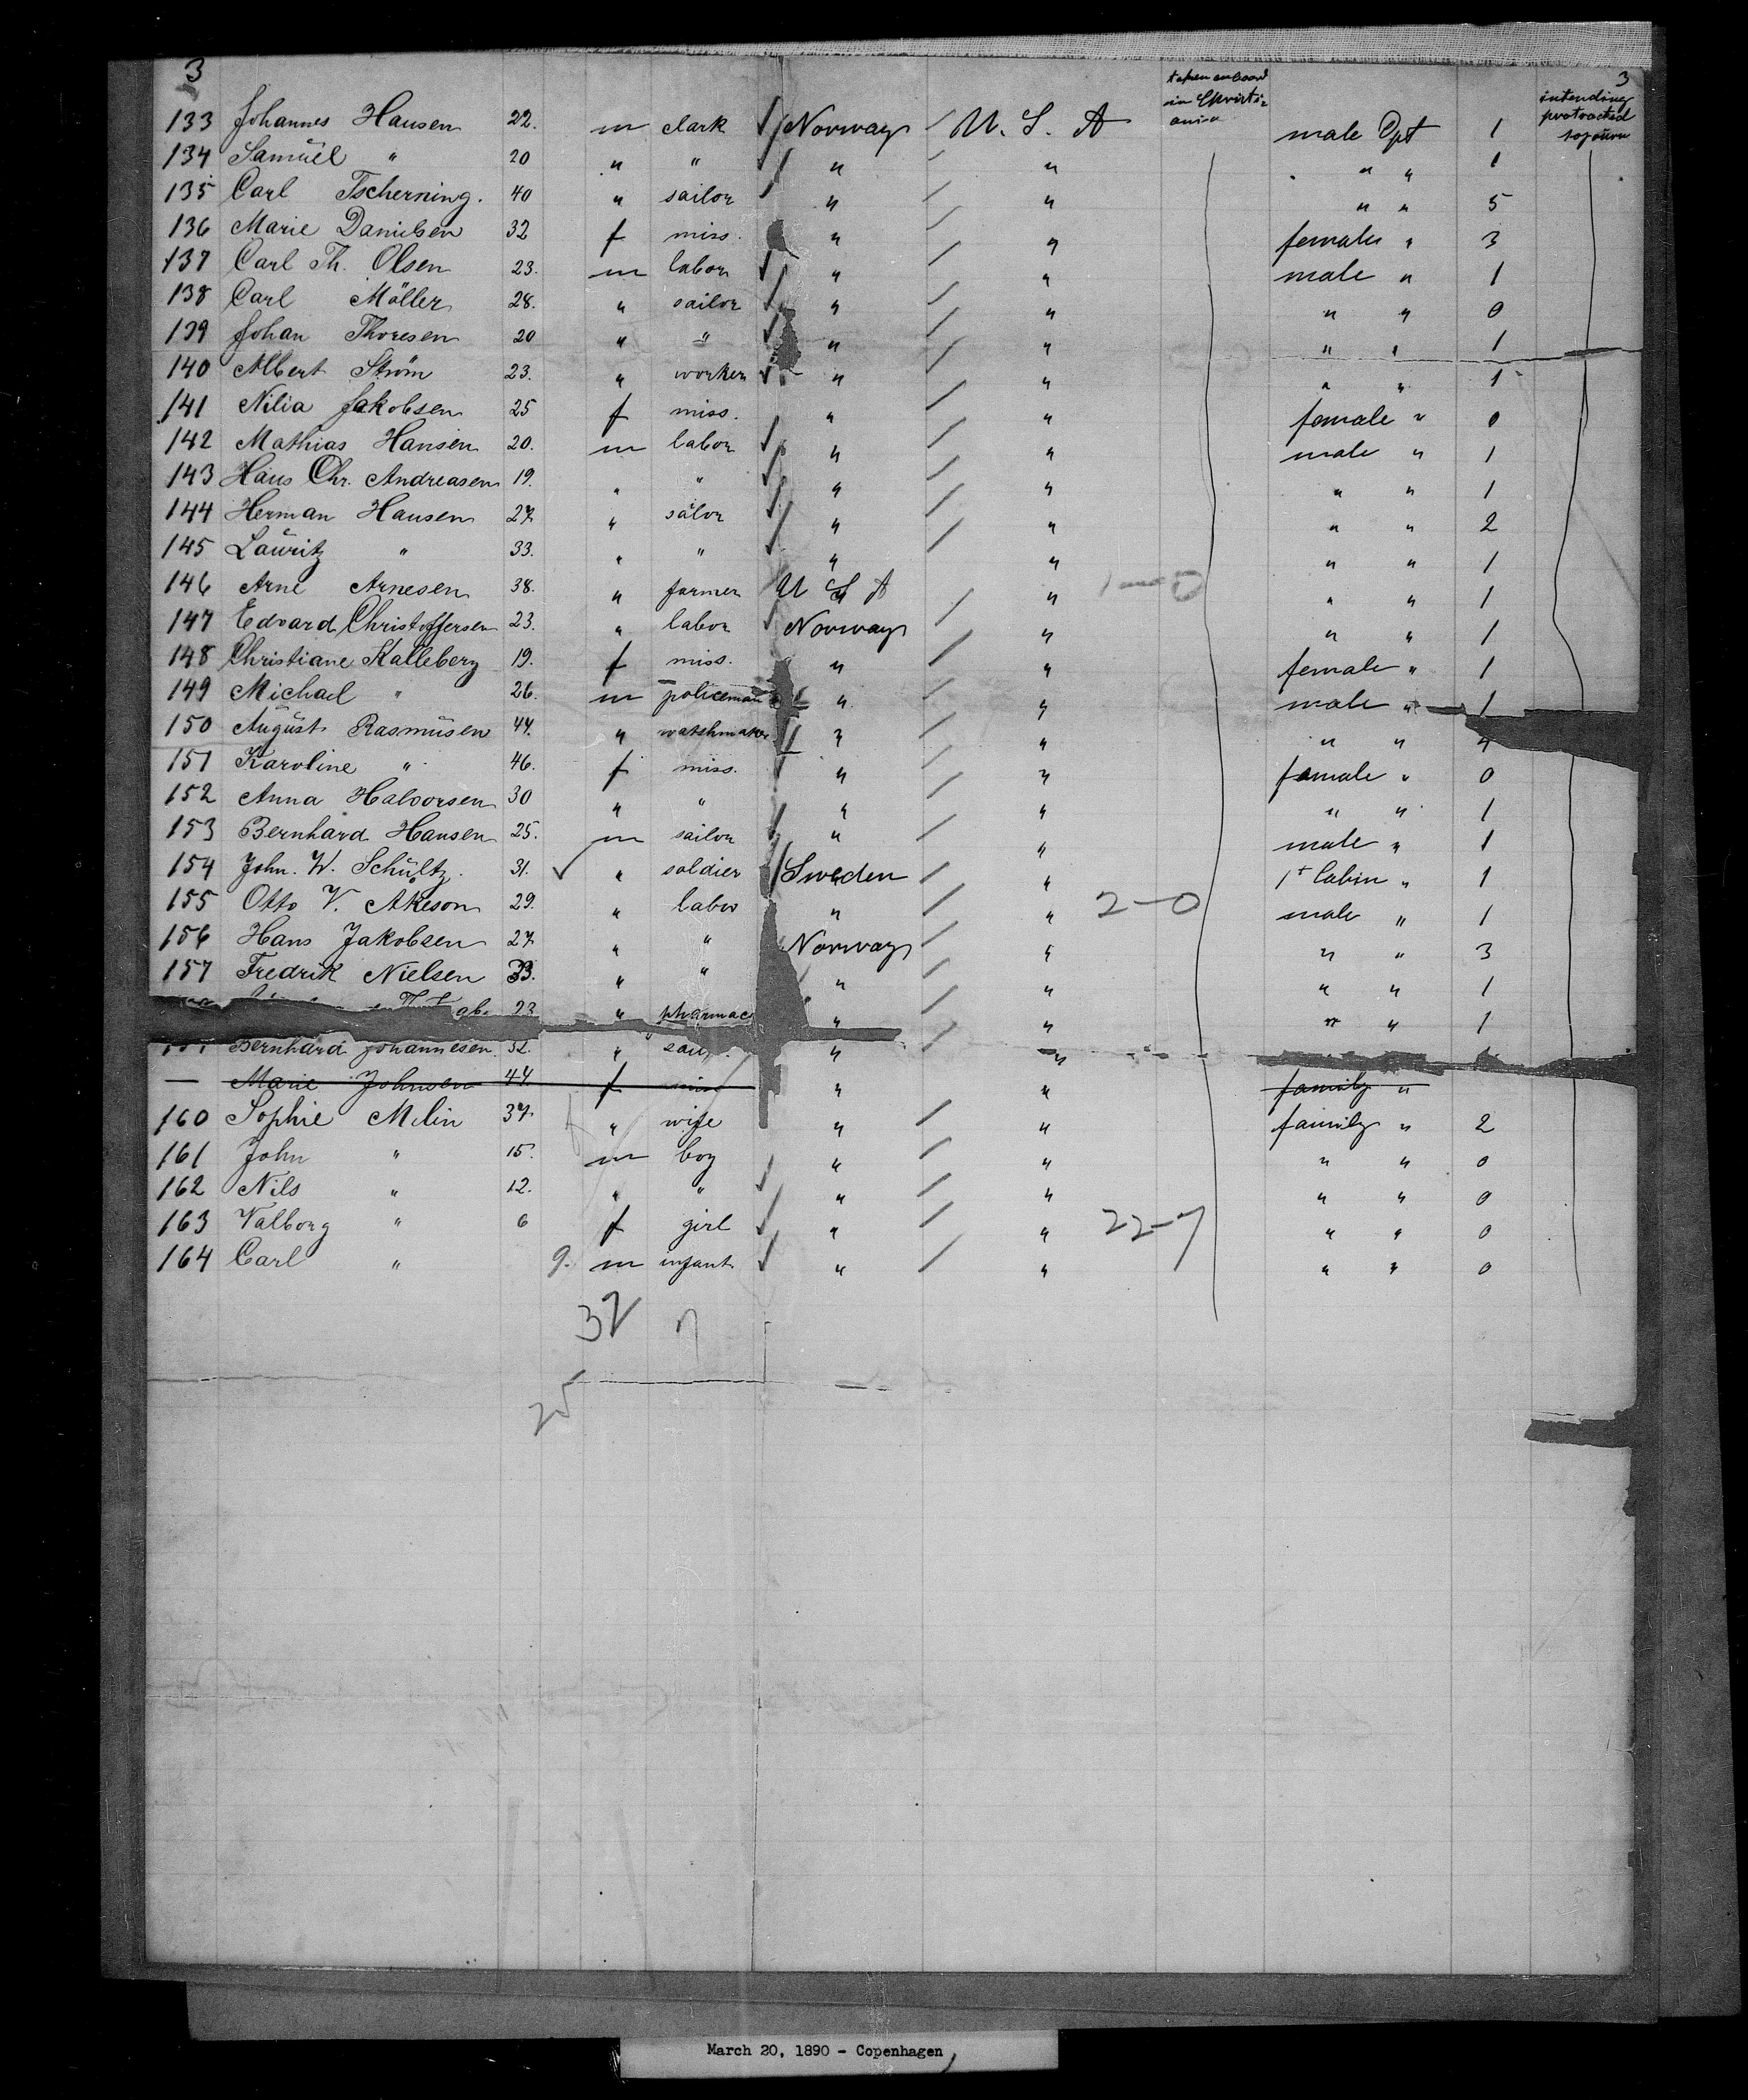 3 3
taken onboard in Christiania
intending protracted sojourn
133 Johannes Hansen 22. m clark Norway U. S. A male Dpt 1
134 Samüel " 20 " " " " " " 1
135 Carl Tscherning. 40 " sailor " " " " 5
136 Marie Danielsen 32 f miss. " " female " 3
137 Carl Th. Olsen 23. m labor " " male " 1
138 Carl Möller 28. " sailor " " " " 0
139 Johan Thoresen 20 " " " " " " 1
140 Albert Strøm 23. " worker " " " " 1
141 Nilia Jakobsen 25 f miss. " " female " 0
142 Mathias Hansen 20. m labor " " male " 1
143 Hans Chr. Andreasen 19. " " " " " " 1
144 Herman Hansen 27. " sailor " " " " 2
145 Laüritz " 33. " " " " " " 1
146 Arne Arnesen 38. " farmer U S A " 1-0 " " 1
147 Edvard Christoffersen 23. " labor Norway " " " 1
148 Christiane Kalleberg 19. f miss. " " female " 1
149 Michael " 26. m policeman " " male " 1
150 Aügüst Rasmüsen 44. " watshmaker " " " " 4
151 Karoline " 46. f miss. " " female " 0
152 Anna Halvorsen 30 " " " " " " 1
153 Bernhard Hansen 25. m sailor " " male " 1
154 John. W. Schültz. 31. " soldier Sweden " 1t Cabin " 1
155 Otto V. Åkeson 29. " labor " " 2-0 male " 1
156 Hans Jakobsen 27. " " Norway " " " 3
157 Fredrik Nielsen 33. " " " " " " 1
23 " pharmac " " " " 1
Bernhard Johannesen 32. " " "
— Marie Johnsen 44. f miss " " family "
160 Sophie Melin 37. " wife " " family " 2
161 John " 15. m boy " " " " 0
162 Nils " 12. " " " " " " 0
163 Valborg " 6 f girl " " 22-7 " " 0
164 Carl " 9. m infant " " " " 0
32 7
25
March 20, 1890 - Copenhagen